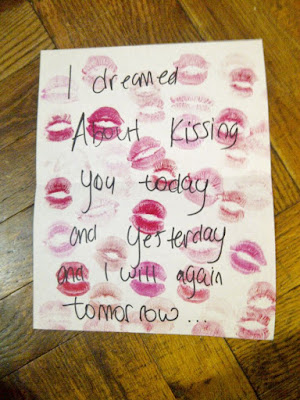 I dreamed
About kissing
you today
and yesterday
and I will again
tomorrow...